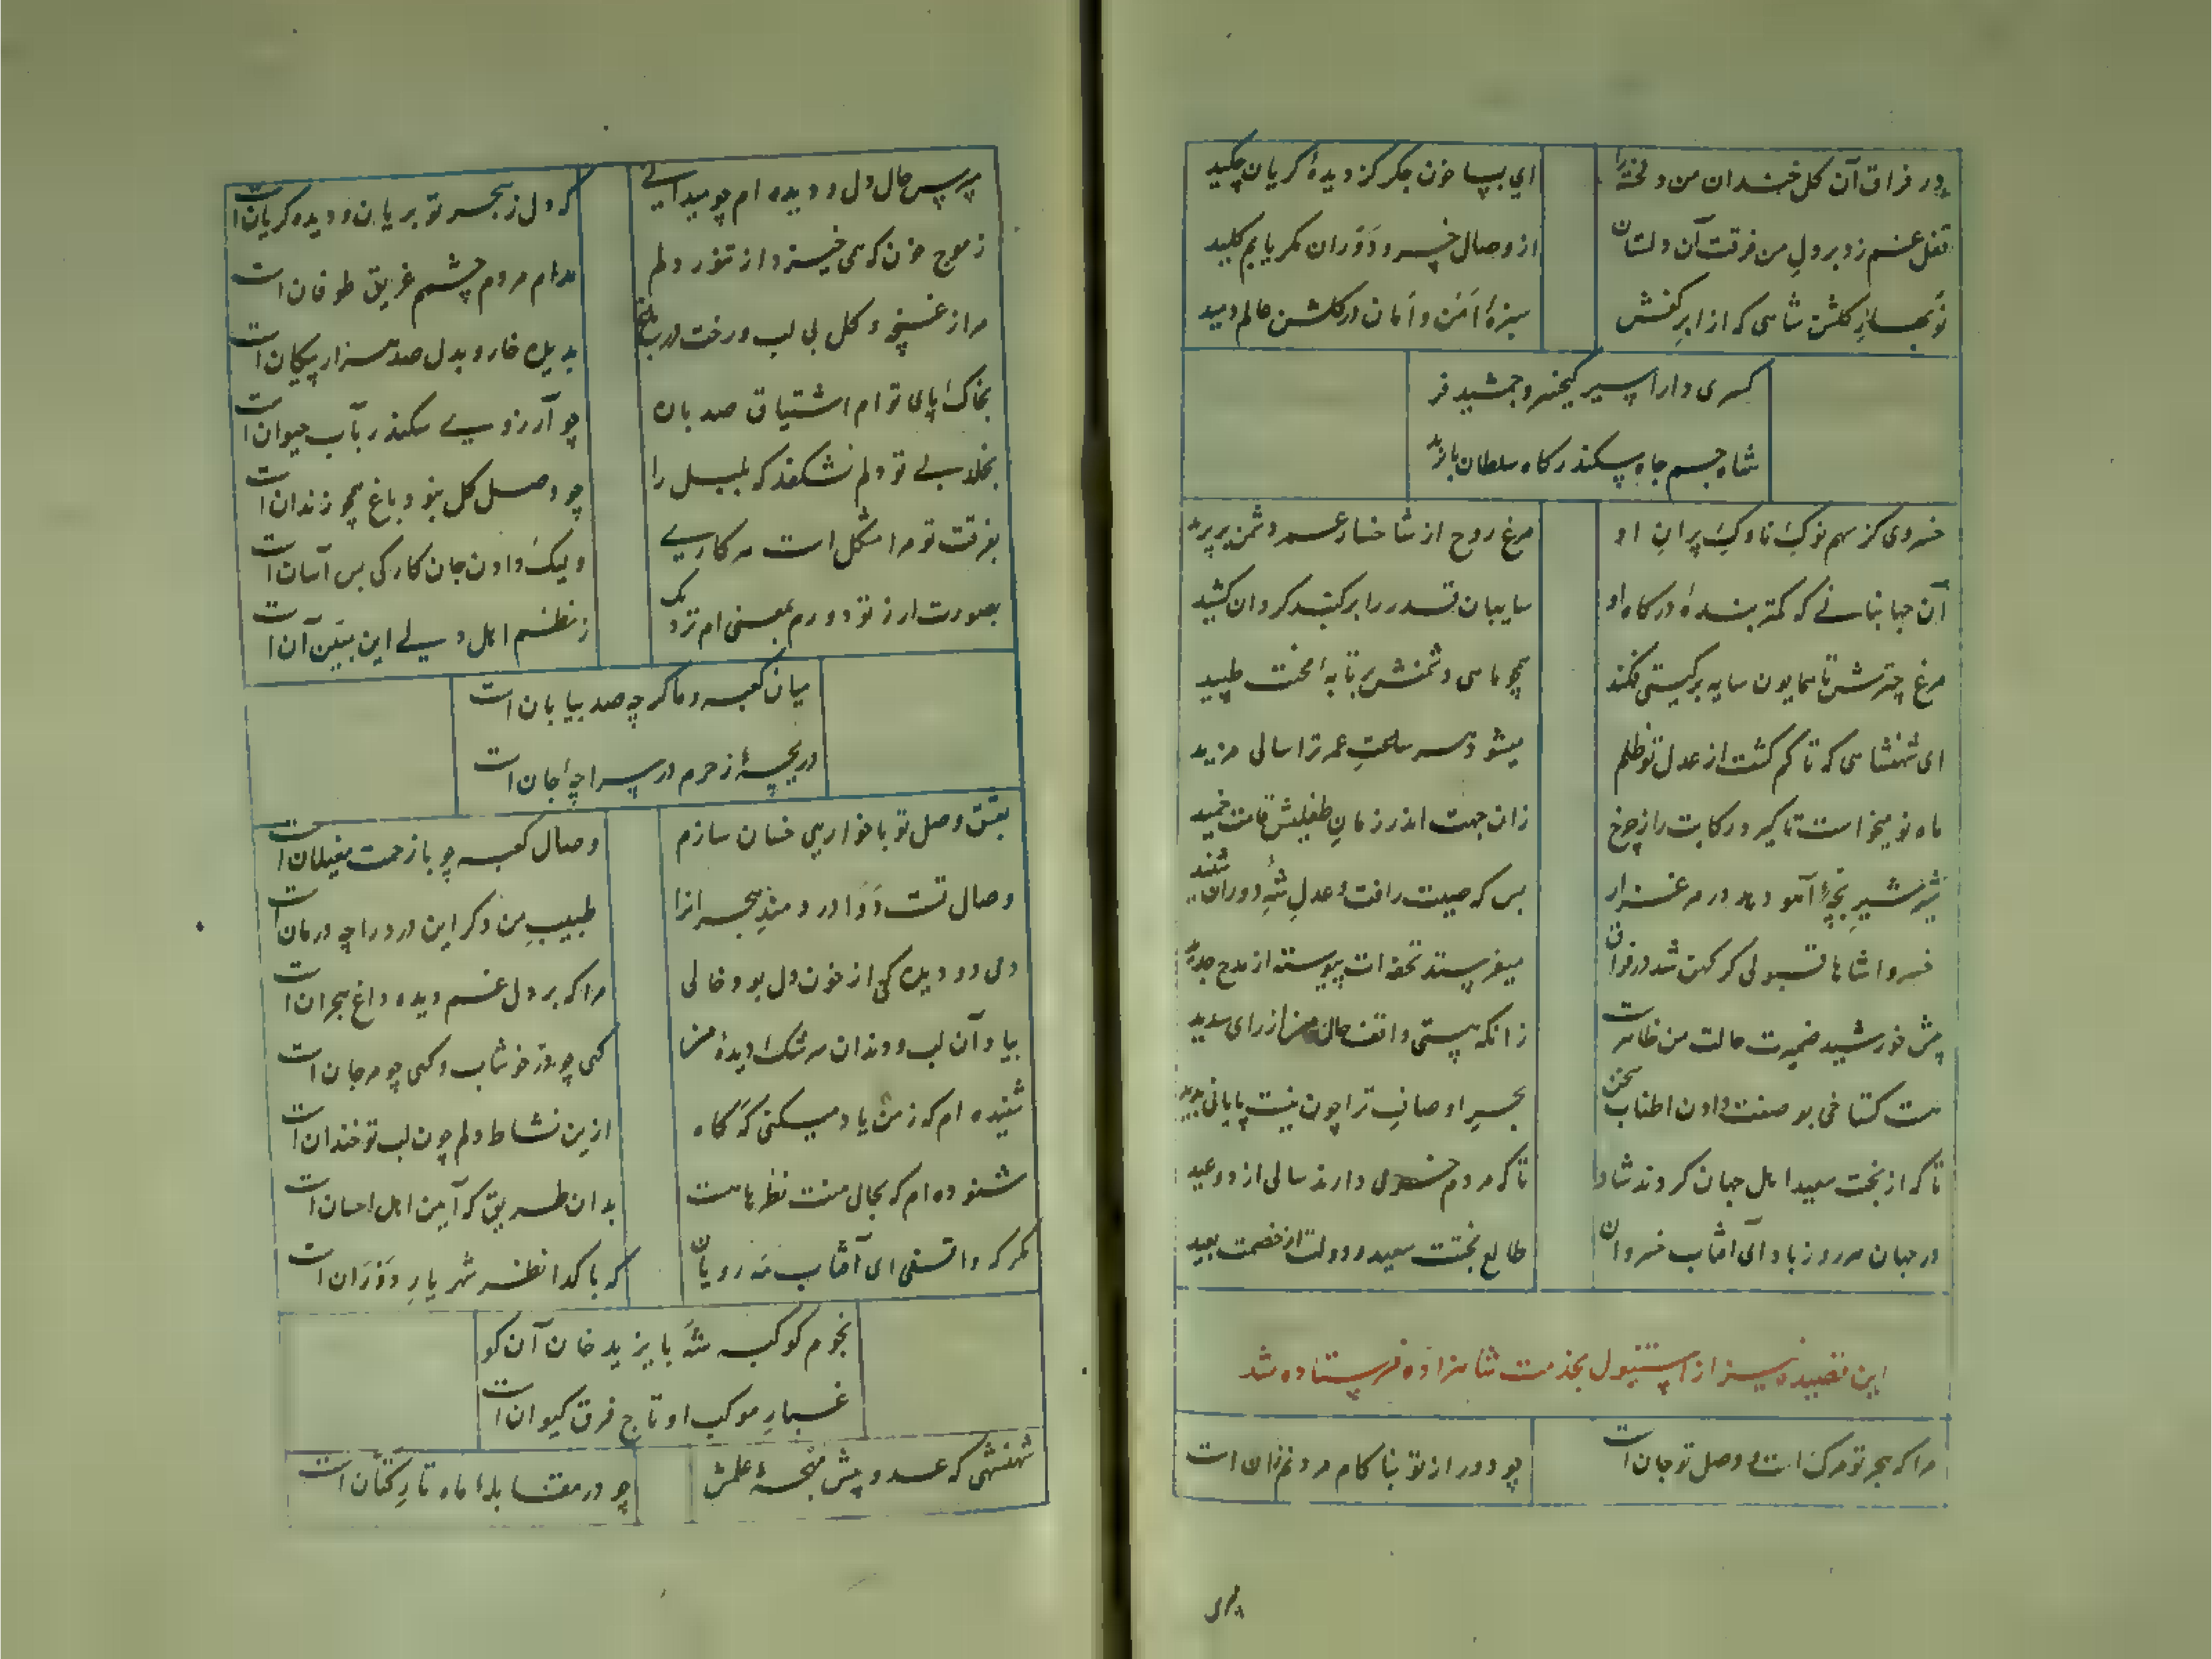 در فراق آن کل خندان من دلخسته را
ای بسا خون جکر کز دیدهٔ کریان چکید
قفل غم زد بر دلِ من فرقت آن دلستان
از وصال خسرو دَوْران مکر یابم کلید
نوبهارِ کلشن شاهی که از ابرِ کفش
سبزهٔ اَمن و اَمان در کلشن عالم دمید
کسری دارا سپر کیخسرو جمشید فر
شاه جم جاه سکندر کاه سلطان بایزید
خسروی کز سهم نوکِ ناوکِ پرانِ او
مرغ روح از شاخسار عمر دشمن بر پرید
آن جهانبانی که کمتر بندهٔ درکاه او
سایبان قدر را بر کنبد کردان کشید
مرغ چترش تا همایون سایه بر کیتی فکند
همچو ماهی دشمنش بر تابهٔ محنت طپید
ای شهنشاهی که تا کم کشت از عدل تو ظلم
میشود هر ساعتِ عمر ترا سالی مزید
ماه نو میخواست تا کیرد رکابت را ز چرخ
زان جهت اندر زمانِ طفلیش قامت خمید
شیر شیرِ بچهٔ آهو دهد در مرغزار
بس که صیت رافت و عدلِ شهِ دوران شنید
خسروا شاها قبولی کر کهن شد در فراق
میفرستد تحفه ات پیوسته از مدح جدید
پیش خورشید ضمیرت حالت من ظاهرست
زانکه هستی واقف حال من از رای سدید
هست کستاخی بوصفت دادن اطناب سخن
بحرِ اوصافِ ترا چون نیست پایانی پدید
تا که از بخت سعید اهل جهان کردند شاد
تا که مردم خرمی دارند سالی از دو عید
در جهان هر روز باد ای آفتاب خسروان
طالع بختت سعید و دولت از خصمت بعید
این قصیده نیز از استنبول بخدمت شاهزاده فرستاده شد
مرا که هجر تو مرک است و وصل تو جان است
چو دور از تو بناکام مردنم زان است
مپرس حال دل و دیده ام چو میدانی
که دل ز هجر تو بریان و دیده کریان است
ز موج خون که همی خیزد از تنور دلم
مدام مردم چشمم غریق طوفان است
مرا ز غنچه و کل بی لب و رخت در باغ
بدیده خار و بدل صد هزار پیکان است
بخاک پای توام اشتیاق صد باره
چو آرزویی سکندر بآب حیوان است
بخلد بی تو دلم نشکفد که بلبل را
چو وصل کل نبود باغ همچو زندان است
بفرقت تو مرا مشکل است هر کاریی
ولیک دادن جان کارکی بس آسان است
بصورت ار ز تو دورم بمعنی ام نزدیک
ز نظم اهل دلی این مبیّن آن است
میان کعبه و ما کرچه صد بیابان است
دریچهٔ ز حرم در سراچهٔ جان است
بعشق وصل تو با خواریی خسان سازم
وصال کعبه چو با زحمت مغیلان است
وصال تست دَوا دردمندِ هجرانرا
طبیبِ من دکر این درد را چه درمان است
دمی دو دیده کی از خون دل بود خالی
مرا که بر دل غم دیده داغ هجران است
بیاد آن لب و دندان سرشک دیدهٔ من
کهی چو درّ خوشاب و کهی چو مرجان است
شنیده ام که ز من یاد میکنی که کاه
ازین نشاط دلم چون لب تو خندان است
شنوده ام که بحالِ منت نظرهاست
بدان طریق که آیین اهل احسان است
مکر که واقفی ای آفتاب مه رویان
که با کدا نظر شهریارِ دَوْرَان است
نجوم کوکبه شه بایزید خان آن کو
غبارِ موکب او تاج فرق کیوان است
شهنشهی که عدو پیش پنجهٔ علمش
چو در مقابلهٔ ماه تارِ کتّان است